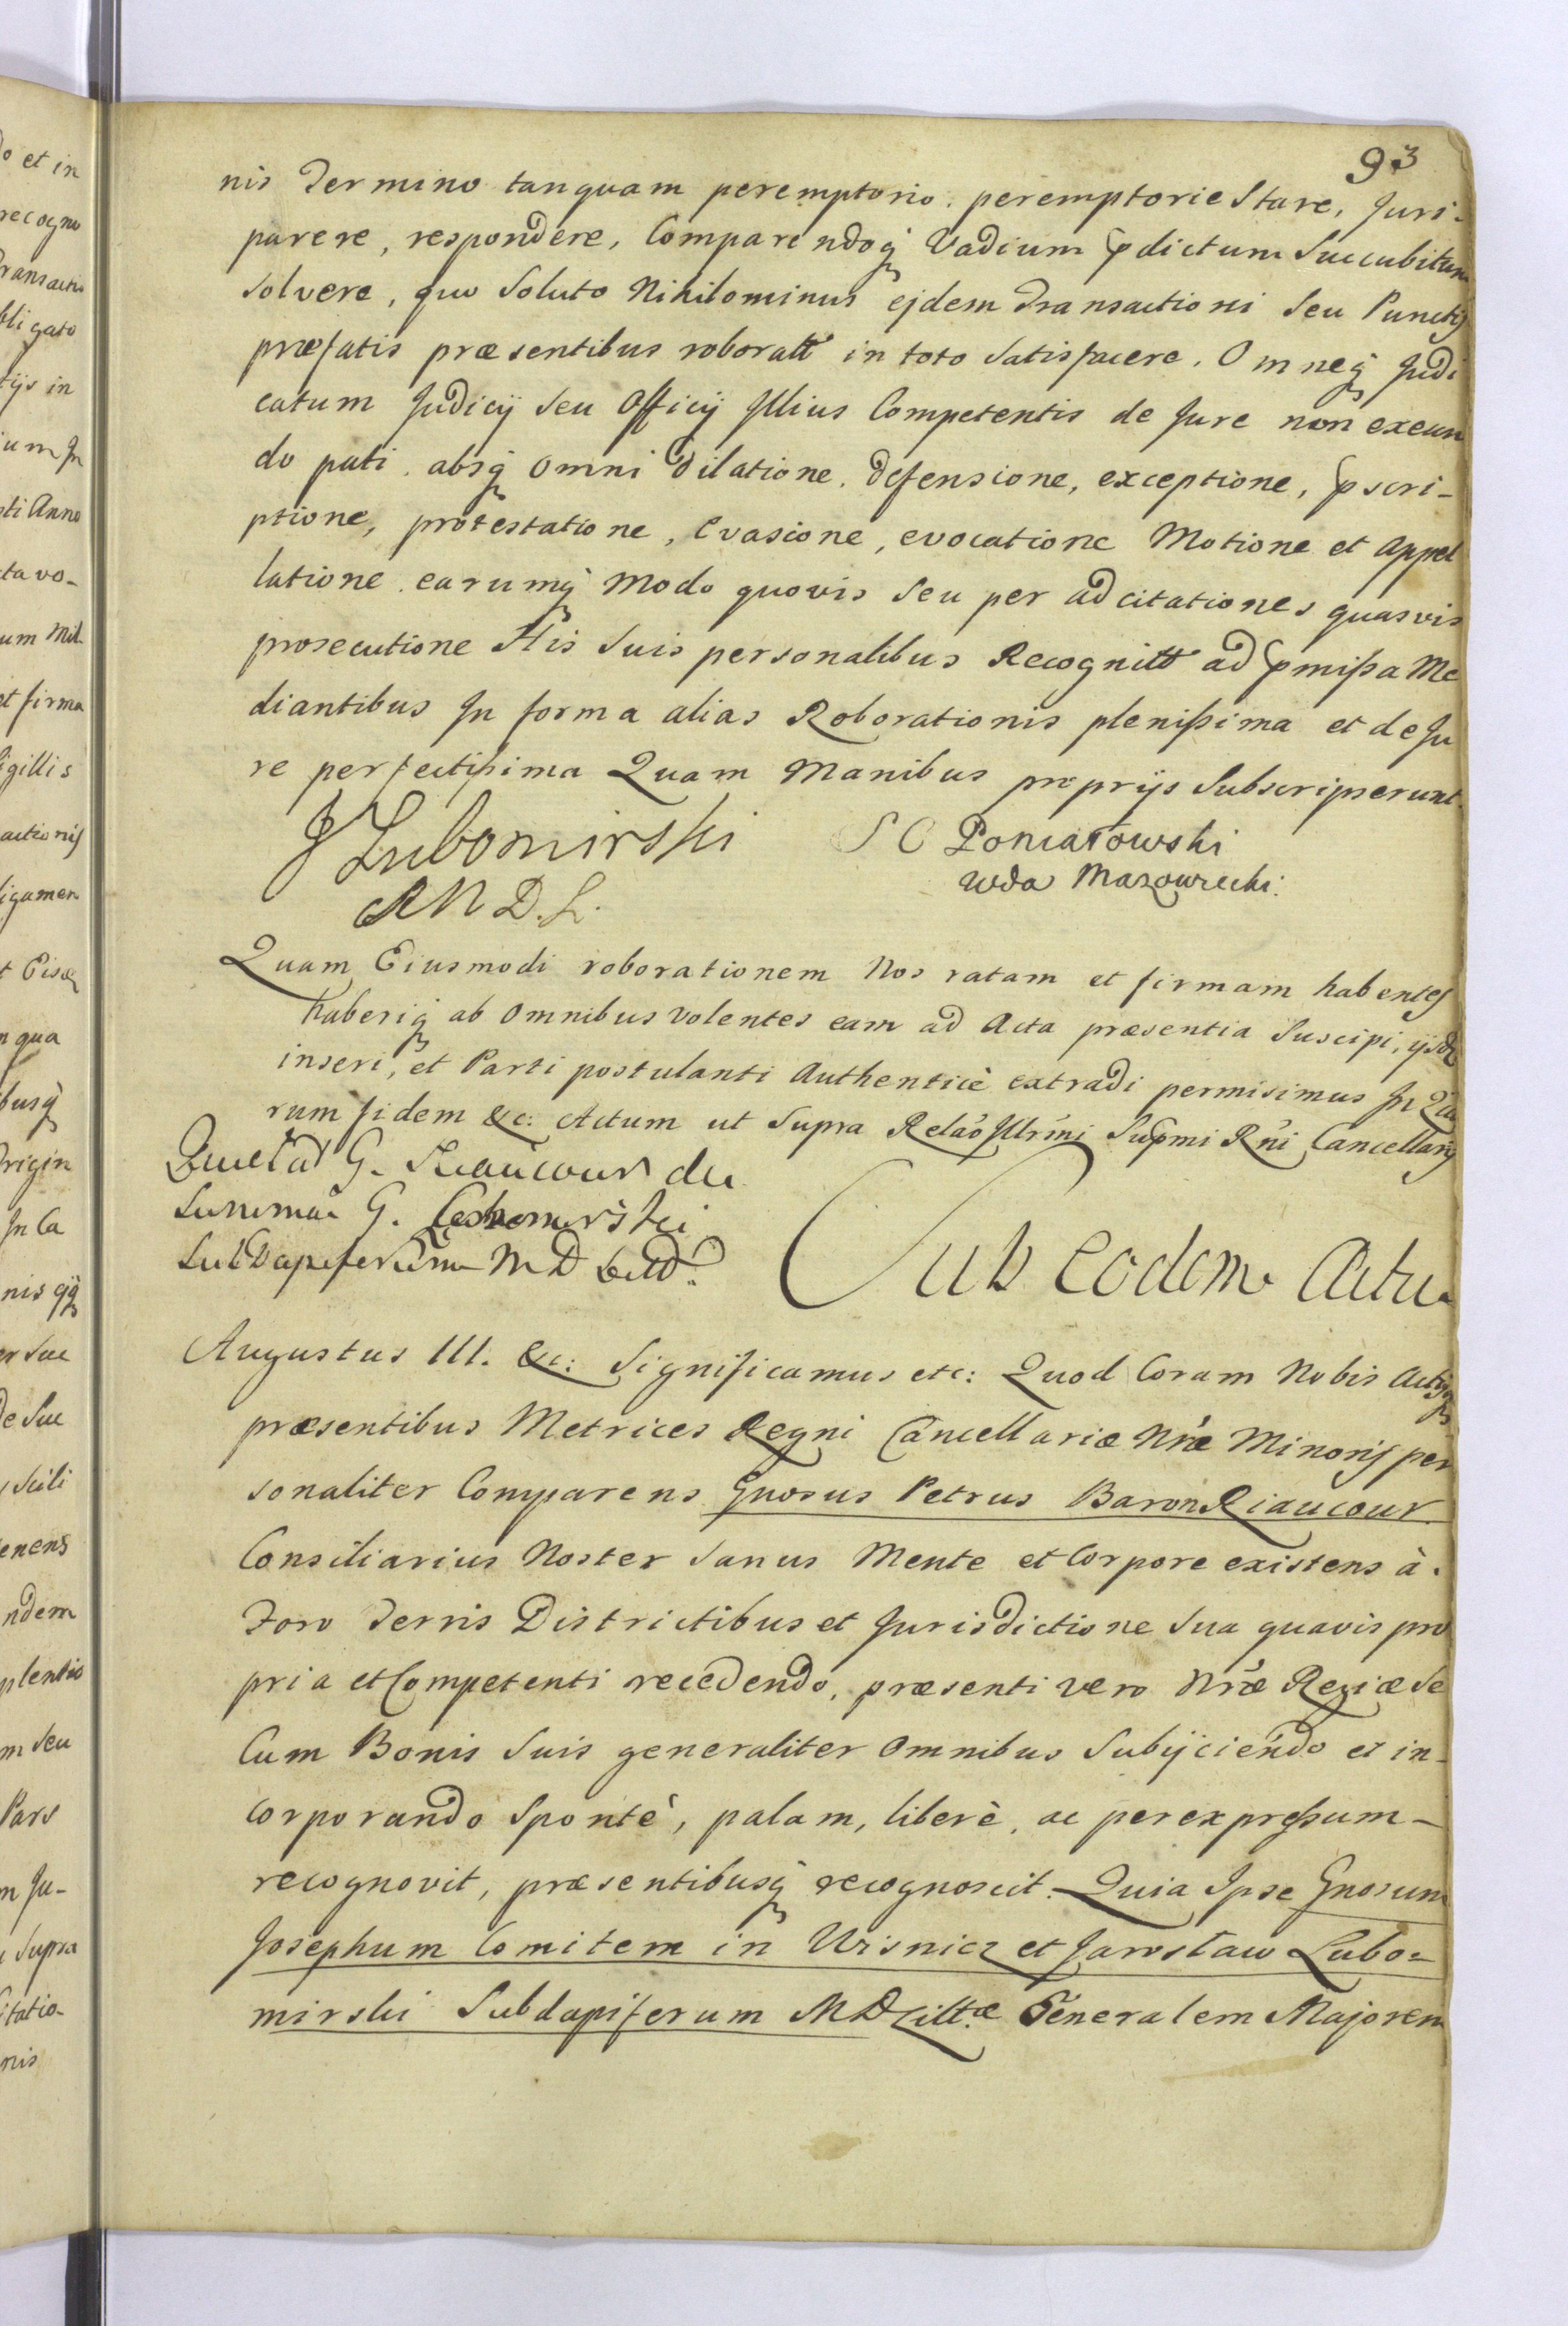 93
nis Termino tanquam peremptorio. peremptorie Stare, Juri-
parere, respondere, Comparendoq́ Vadium p̄dictum Succubitum
solvere, quo Soluto Nihilominus ejdem Transactioni Seu Punctis
præfatis præsentibus roboratt in toto Satisfacere. Omneq́ Judi
catum Judicij Seu Officij Illius Competentis de Jure non exeun
do pati. absq́ omni Dilatione. Defensione, exceptione, p̄scri-
ptione, protestatione, Evasione, evocatione Motione et Appel
latione. earumq́ Modo quovis Seu per adcitationes quasvis
prosecutione His Suis personalibus Recognitt ad p̄mißa Me
diantibus In forma alias Roborationis plenißima et de Ju
re perfectißima Quam Manibus proprijs Subscripserunt.
J Lubomirski
S C Poniatowski
Wda Mazowiecki.
M D. L.
Quam Eiusmodi roborationem Nos ratam et firmam habentes
haberiq́ ab Omnibus Volentes eam ad Acta præsentia Suscipi, ijsdē
inseri, et Parti postulanti Authenticè extradi permisimus In Quo
rum fidem &c: Actum ut Supra Relão Illr̃mi Sup̄mi Rñi Cancellarij
Quietat G. Riaucour de
Summa G. Lubomirski
SubDapiferum M D Litt.
Sub Eodem Actu
Augustus III. &c: Significamus etc: Quod Coram Nobis Actisq́
præsentibus Metrices Regni Cancellariæ Nræ Minoris per
sonaliter Comparens Gnosus Petrus Baron Riaucour
Consiliarius Noster Sanus Mente et Corpore existens à.
Foro Terris Districtibus et Jurisdictione Sua quavis pro
pria et Competenti recedendo, præsenti vero Nræ Regiæ Se
Cum Bonis Suis generaliter Omnibus Subijciendo et in-
corporando Spontè, palam, liberè, ac per expreßum-
recognovit, præsentibusq́ recognoscit. Quia Ipse Gnosum
Josephum Comitem in Wisnicz et Jarosław Lubo=
mirski Subdapiferum M D Litt.æ Generalem Majorem